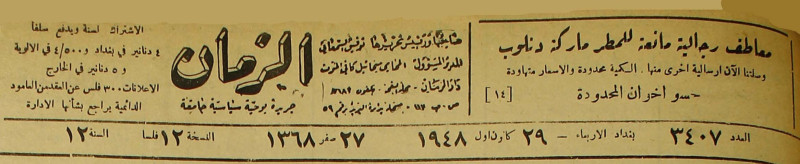 معاطف رجالية مانعة للمطر ماركة دنلوب
وصلتنا الآن ارسالية اخرى منها. الكمية محدودة والاسعار متهاودة
حسو اخوان المحدودة
[١٤]
صاحبها ورئيس تحريرها توفيق السمعاني
المدير المسؤول: المحامي
دار الزمان
ص. ب ١١٢
الزمان
جريدة يومية سياسية جامعة
الاشتراك لسنة ويدفع سلفا
٤ دنانير في بغداد و ٤/٥٠٠ في الالوية
و ٥ دنانير في الخارج
الاعلانات ٣٠٠ فلس عن العقد من العامود
الدائمية يراجع بشأنها الادارة
العدد ٣٤٠٧ بغداد الاربعاء – ٢٩ كانون اول ١٩٤٨ ٢٧ صفر ١٣٦٨ النسخة ١٢ فلسا السنة ١٢